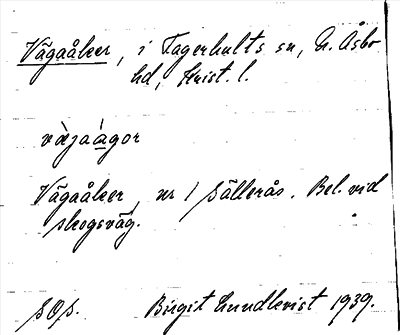 Vägaåker, i Fagerhults sn, N. Åsbo
hd, Krist. l.
vä̀jaágor
Vägaåker, nr 1 Sällerås. Bel. vid
skogsväg.
SOS. Birgit Lundkvist 1939.